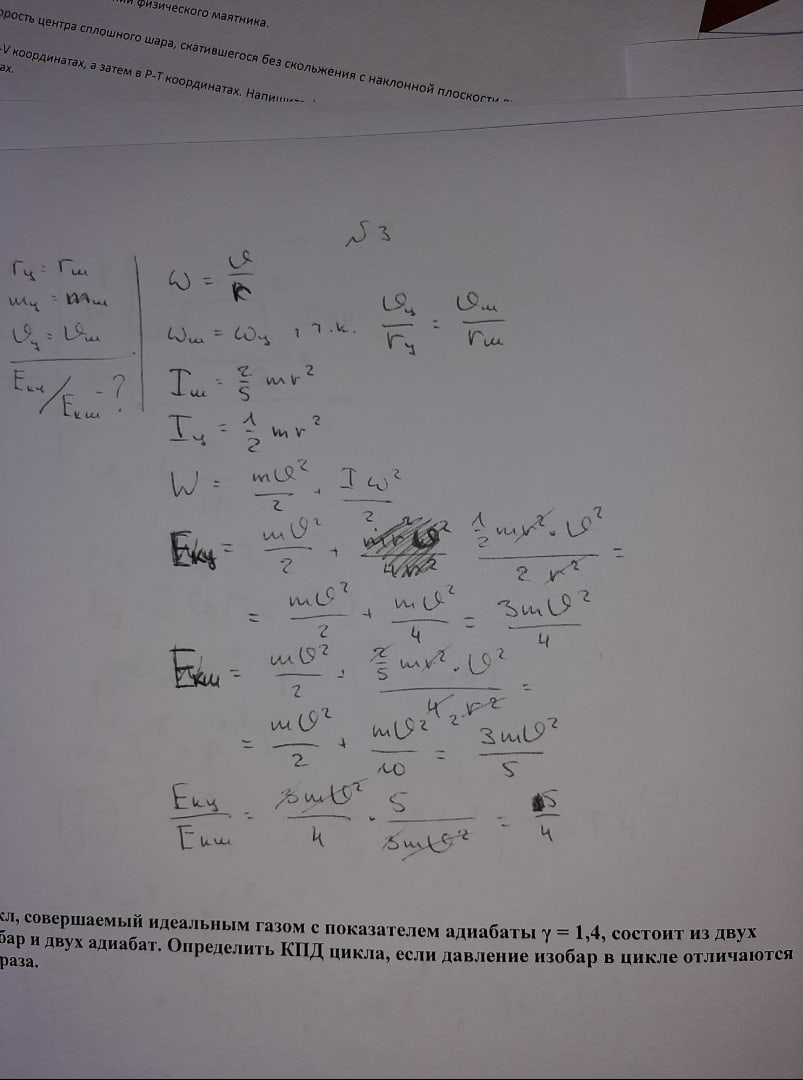 физического маятника.
орость центра сплошного шара, скатившегося без скольжения с наклонной плоскости
-V координатах, а затем в P-T координатах.
ах.
№ 3
rц = rш
mц = mш
υц = υш
Eкц/Eкш - ?
ω = υ/R
ωш = ωц, т.к. υц/rц = υш/rш
Iш = 2/5 mr²
Iц = 1/2 mr²
W = mυ²/2 + Iω²/2
Eкц = mυ²/2 + 1/2 mr²·υ²/2r² =
= mυ²/2 + mυ²/4 = 3mυ²/4
Eкш = mυ²/2 + 2/5 mr²·υ²/4 2r² =
= mυ²/2 + mυ²/10 = 3mυ²/5
Eкц/Eкш = 3mυ²/4 · 5/3mυ² = 5/4
кл, совершаемый идеальным газом с показателем адиабаты γ = 1,4, состоит из двух
бар и двух адиабат. Определить КПД цикла, если давление изобар в цикле отличаются
раза.